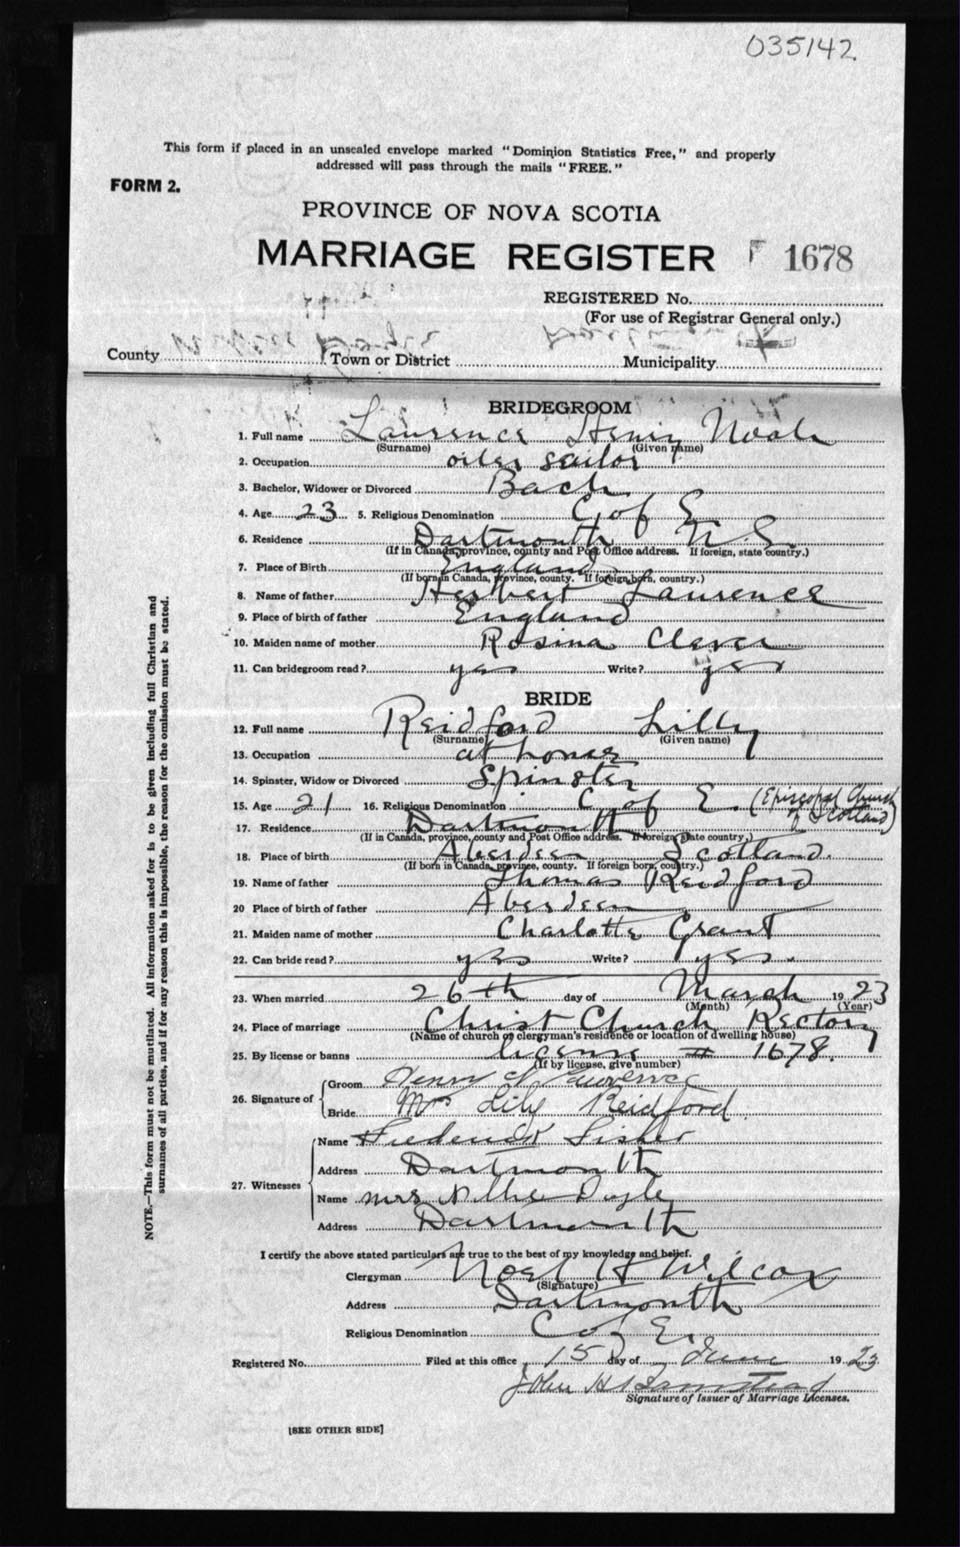 035142
This form if placed in an unsealed envelope marked "Dominion Statistics Free," and properly
addressed will pass through the mails "FREE."
FORM 2.
PROVINCE OF NOVA SCOTIA
MARRIAGE REGISTER 1678
REGISTERED No.
(For use of Registrar General only.)
County Town or District Municipality
BRIDEGROOM
1. Full name Laurence Henry Noah
(Surname) (Given name)
2. Occupation oiler sailor
3. Bachelor, Widower or Divorced Bach
4. Age 23 5. Religious Denomination C of E
6. Residence Dartmouth N.S.
(If in Canada, province, county and Post Office address. If foreign, state country.)
7. Place of Birth England
(If born in Canada, province, county. If foreign born, country.)
8. Name of father Herbert Laurence
9. Place of birth of father England
10. Maiden name of mother Rosina Clever
11. Can bridegroom read? yes Write? yes
BRIDE
12. Full name Reidford Lilly
(Surname) (Given name)
13. Occupation at home
14. Spinster, Widow or Divorced Spinster
15. Age 21 16. Religious Denomination C of E. (Episcopal Church
of Scotland)
17. Residence Dartmouth
(If in Canada, province, county and Post Office address. If foreign, state country.)
18. Place of birth Aberdeen Scotland.
(If born in Canada, province, county. If foreign born, country.)
19. Name of father Thomas Reidford
20 Place of birth of father Aberdeen
21. Maiden name of mother Charlotte Grant
22. Can bride read? yes Write? yes.
23. When married 26th day of March 1923
(Month) (Year)
24. Place of marriage Christ Church Rectory
(Name of church or clergyman's residence or location of dwelling house)
25. By license or banns license # 1678.
(If by license, give number)
26. Signature of
Groom Henry N Laurence
Bride Mrs Lily Reidford
27. Witnesses
Name Frederick Fisher
Address Dartmouth
Name Mrs Doyle
Address Dartmouth
I certify the above stated particulars are true to the best of my knowledge and belief.
Clergyman Noel H Wilcox
(Signature)
Address Dartmouth
Religious Denomination C of E.
Registered No. Filed at this office 15 day of June 1923
John H
Signature of Issuer of Marriage Licenses.
[SEE OTHER SIDE]
NOTE.—This form must not be mutilated. All information asked for is to be given including full Christian and
surnames of all parties, and if for any reason this is impossible, the reason for the omission must be stated.